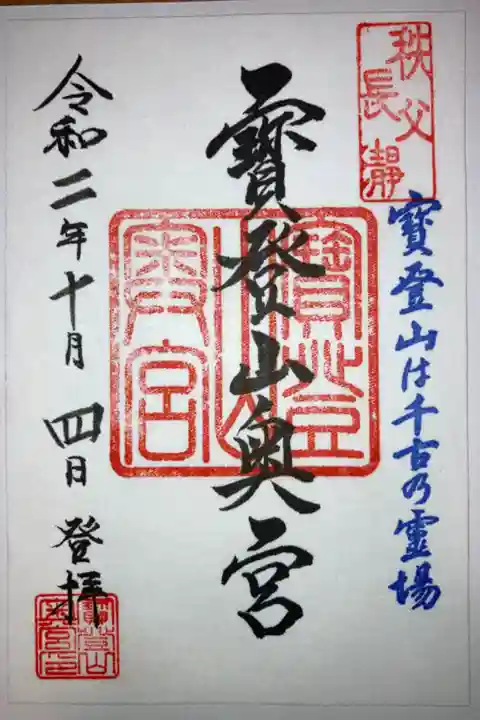 秩父
長瀞
寳登山は千古乃霊場
寳登山奥宮
令和二年十月四日登拝
寳登山
奥宮